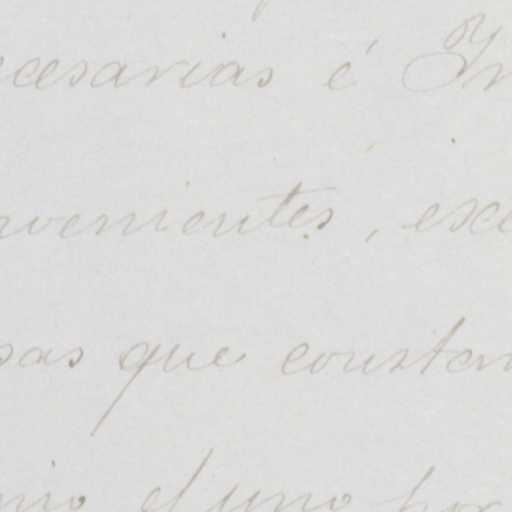 cesarias é In
venientes, exce
sas que constan
nio el uno por